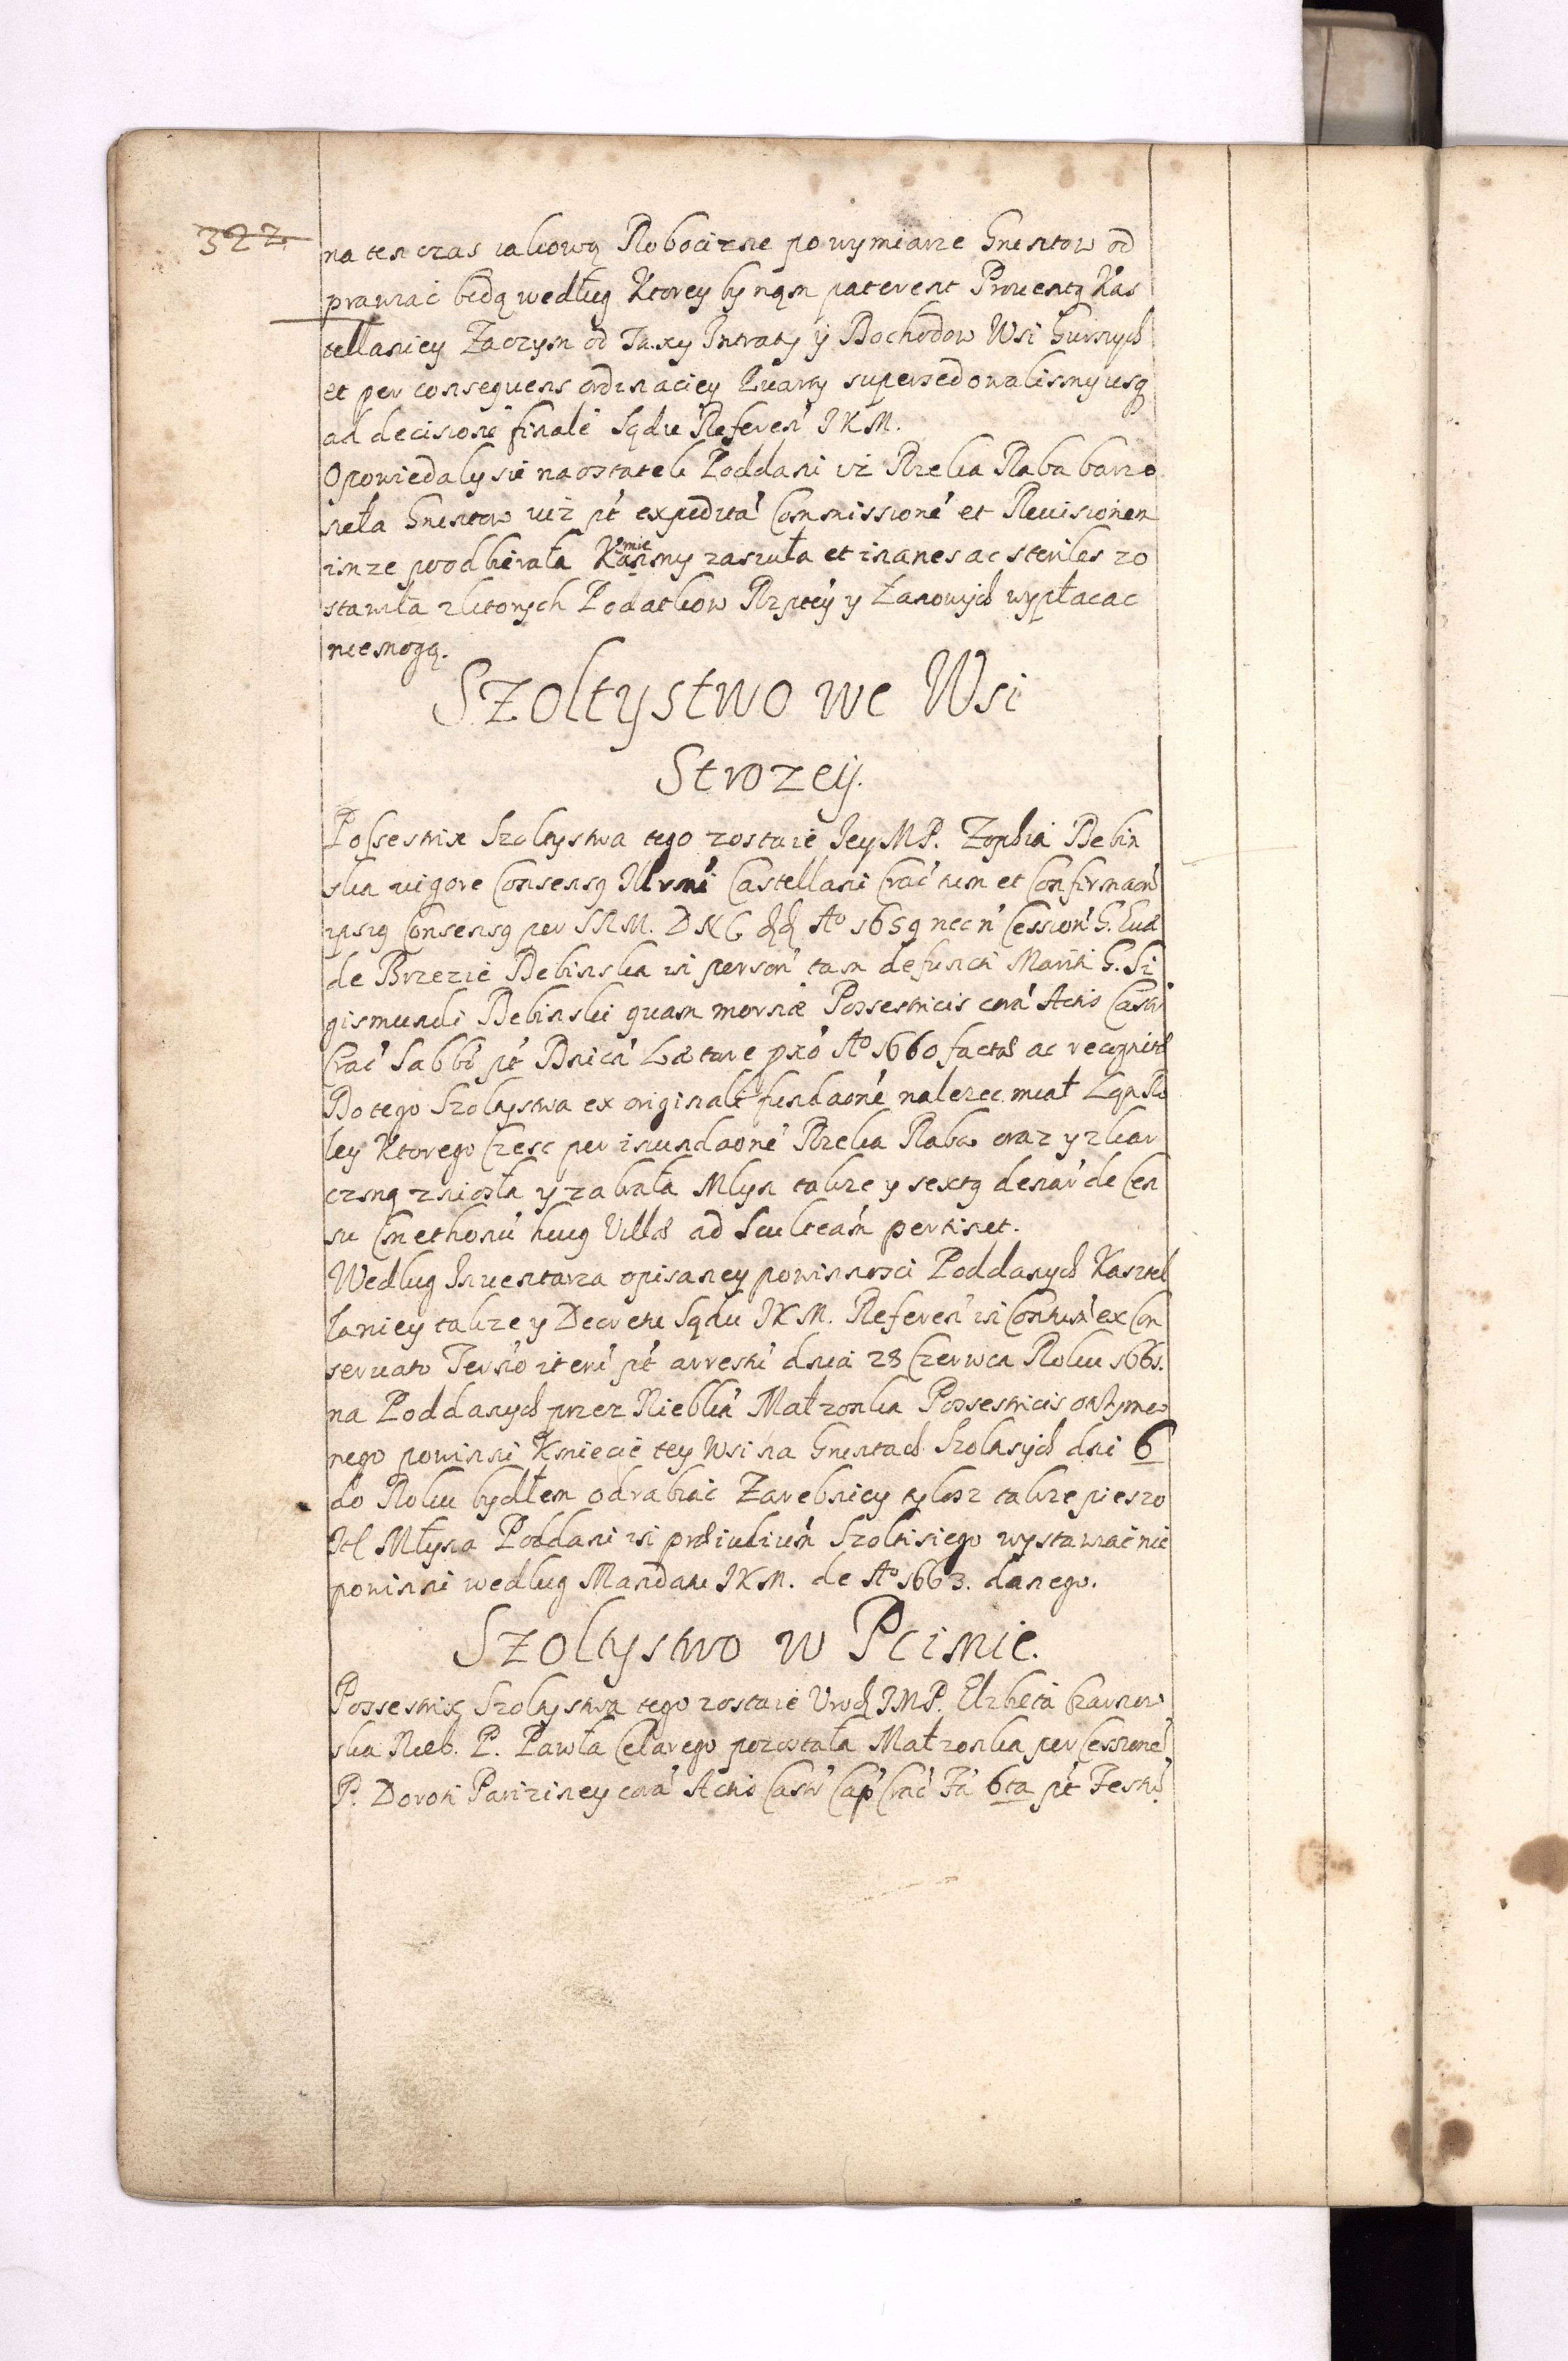 322
na ten czas iakową Robocizne po wymiarze Gruntow od
prawiać bedą według Ktorey by nąm paterent Prouentq Kas
tellaniey Zaczym od Taxy Intraty ÿ Dochodow Wsi Gurnych
et per consequens ordinaciey Kwarty supersedowalismy usq
ad decisionē finalē Sądu Referēn JKM.
Opowiedaly sie na ostatek Poddani iż Rzeka Raba barzo
sieła Gruntow już pt expeditā Commissionē et Reuisionem
im ze poodbierała Kamiemmy zasuła et inanes ac steriles zo
stawiła z ktorych Podatkow Rzptey y Zanowych wypłacac
niemogą.
Szoltystwo we Wsi
Strozeÿ.
Possestrix Szoltystwa tego zostaie Jey MP. Zophia Debin
ska vigore Consensq Illrmi Castellani Crac tum et Confirmaon
ipsiq Consensq per SRM. DNC Ao 1659 necn Cession G. Euæ
de Brzezie Debinska in person tam defuncti Mariti G. Si
gismundi Debinski quam mornæ Possestricis corā Actis Castr
Crac Sabbo pt Dnicā Lætare pxo Ao 1660 factæ ac recognitæ
Do tego Szoltystwa ex originali fundaone nalezec miał Łąn Ro
ley Ktorego Czesc per inundaone Rzeka Raba oraz y z kar
czmą zniosła y zabrała Mlyn takze y sextq denār de Cen
su Cmethonū huiq Villæ ad Scultetiam pertinet.
Wedlug Inuentarza opisaney powinnosci Poddanych Kasztel
laniey takze y Decretu Sądu JKM. Referēn in Contum ex Con
seruato Termō iterū pt arrestū dnia 28 Czerwca Roku 1661.
na Poddanych przez Niebkā Małzonka Possestricis otrzyma
nego powinni Kmiecie tey Wsi na Gruntach Szoltysych dni 6
do Roku bydłem odrabiać Zarebnicy tylosz takze pieszo
Itl Młyna Poddani in præiudium Szoltisiego wystawiać nie
powinni wedlug Mandatu JKM. de Ao 1663. danego.
Szoltystwo w Pcimie.
Possestrix Szoltystwa tego zostaie Urodz JMP. Elzbeta Czarnow
ska Nieb. P. Pawła Celarego pozostała Małzonka per Cessionē
P. Doroti Pariziney corā Actis Castr Cap Crac Fā 6ta pt Festū